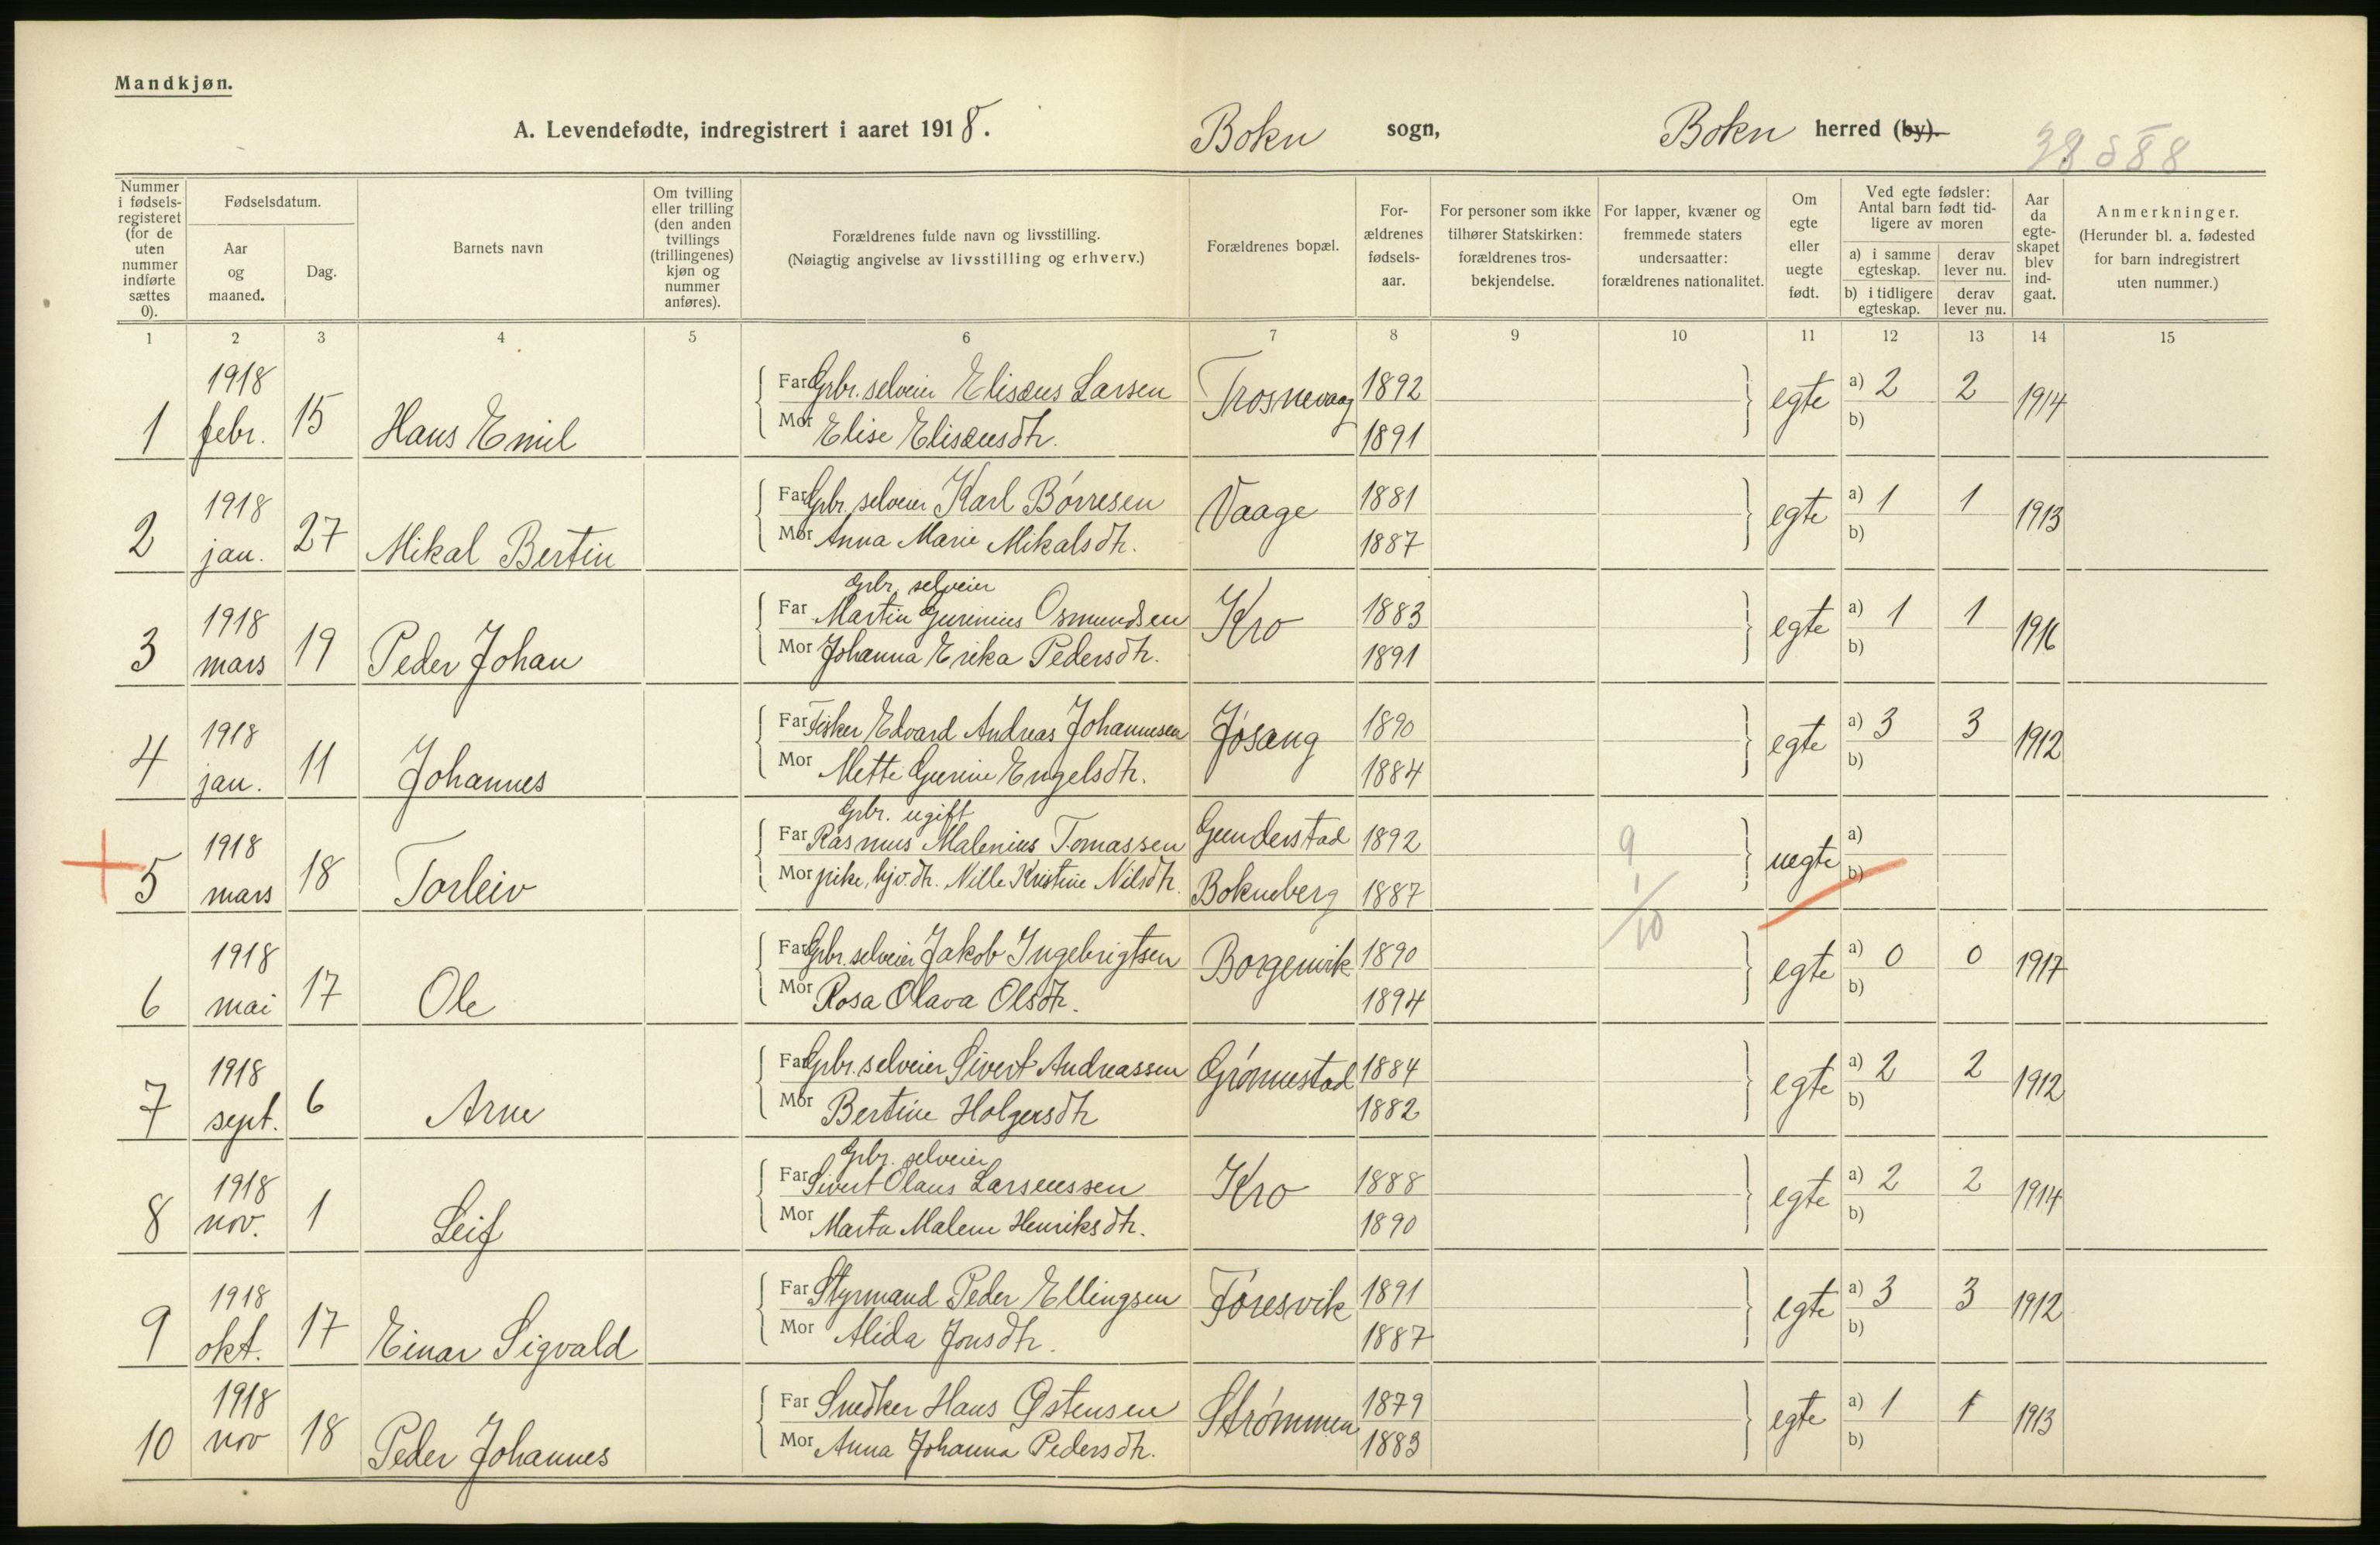 Mandkjøn.
A. Levendefødte, indregistrert i aaret 1918. Bokn sogn, Bokn herred (by).
Nummer i fødsels-registeret (for de uten nummer indførte sættes 0).
Fødselsdatum.
Aar og maaned.
Dag.
Barnets navn
Om tvilling eller trilling (den anden tvillings (trillingenes) kjøn og nummer anføres).
Forældrenes fulde navn og livsstilling.
(Nøiagtig angivelse av livsstilling og erhverv.)
Forældrenes bopæl.
For-ældrenes fødsels-aar.
For personer som ikke tilhører Statskirken: forældrenes tros-bekjendelse.
For lapper, kvæner og fremmede staters undersaatter: forældrenes nationalitet.
Om egte eller uegte født.
Ved egte fødsler: Antal barn født tid-ligere av moren
a) i samme egteskap. derav lever nu.
b) i tidligere egteskap. derav lever nu.
Aar da egte-skapet blev ind-gaat.
Anmerkninger.
(Herunder bl. a. fødested for barn indregistrert uten nummer.)
1 2 3 4 5 6 7 8 9 10 11 12 13 14 15
1 1918 febr. 15 Hans Emil
Far Grbr. selveier Elisæus Larsen Trosnevaag 1892 egte a) 2 2 1914
Mor Elise Elisæusdtr. 1891 b)
2 1918 jan. 27 Mikal Bertin
Far Grbr. selveier Karl Børresen Vaage 1881 egte a) 1 1 1913
Mor Anna Marie Mikalsdtr. 1887 b)
3 1918 mars 19 Peder Johan
Grbr. selveier
Far Martin Gurinius Osmundsen Kro 1883 egte a) 1 1 1916
Mor Johanna Erika Pedersdtr. 1891 b)
4 1918 jan. 11 Johannes
Far Fisker Edvard Andreas Johannesen Jøsang 1890 egte a) 3 3 1912
Mor Mette Gurine Engelsdtr. 1884 b)
5 1918 mars 18 Torleiv
Grbr. ugift
Far Rasmus Malenius Tomassen Gunderstad 1892 9 uegte a)
Mor pike, hjv. dtr. Nille Kristine Nilsdtr. Bokneberg 1887 1/10 b)
6 1918 mai 17 Ole
Far Grbr. selveier Jakob Ingebrigtsen Borgenvik 1890 egte a) 0 0 1917
Mor Rosa Olava Olsdtr. 1894 b)
7 1918 sept. 6 Arne
Far Grbr. selveier Sivert Andreassen Grønnestad 1884 egte a) 2 2 1912
Mor Bertine Holgersdtr 1882 b)
8 1918 nov. 1 Leif
Grbr. selveier
Far Sivert Olaus Larsenssen Kro 1888 egte a) 2 2 1914
Mor Marta Malene Henriksdtr. 1890 b)
9 1918 okt. 17 Einar Sigvald
Far Styrmand Peder Ellingsen Føresvik 1891 egte a) 3 3 1912
Mor Alida Jonsdtr. 1887 b)
10 1918 nov 18 Peder Johannes
Far Snedker Hans Østensen Strømmen 1879 egte a) 1 1 1913
Mor Anna Johanna Pedersdtr. 1883 b)